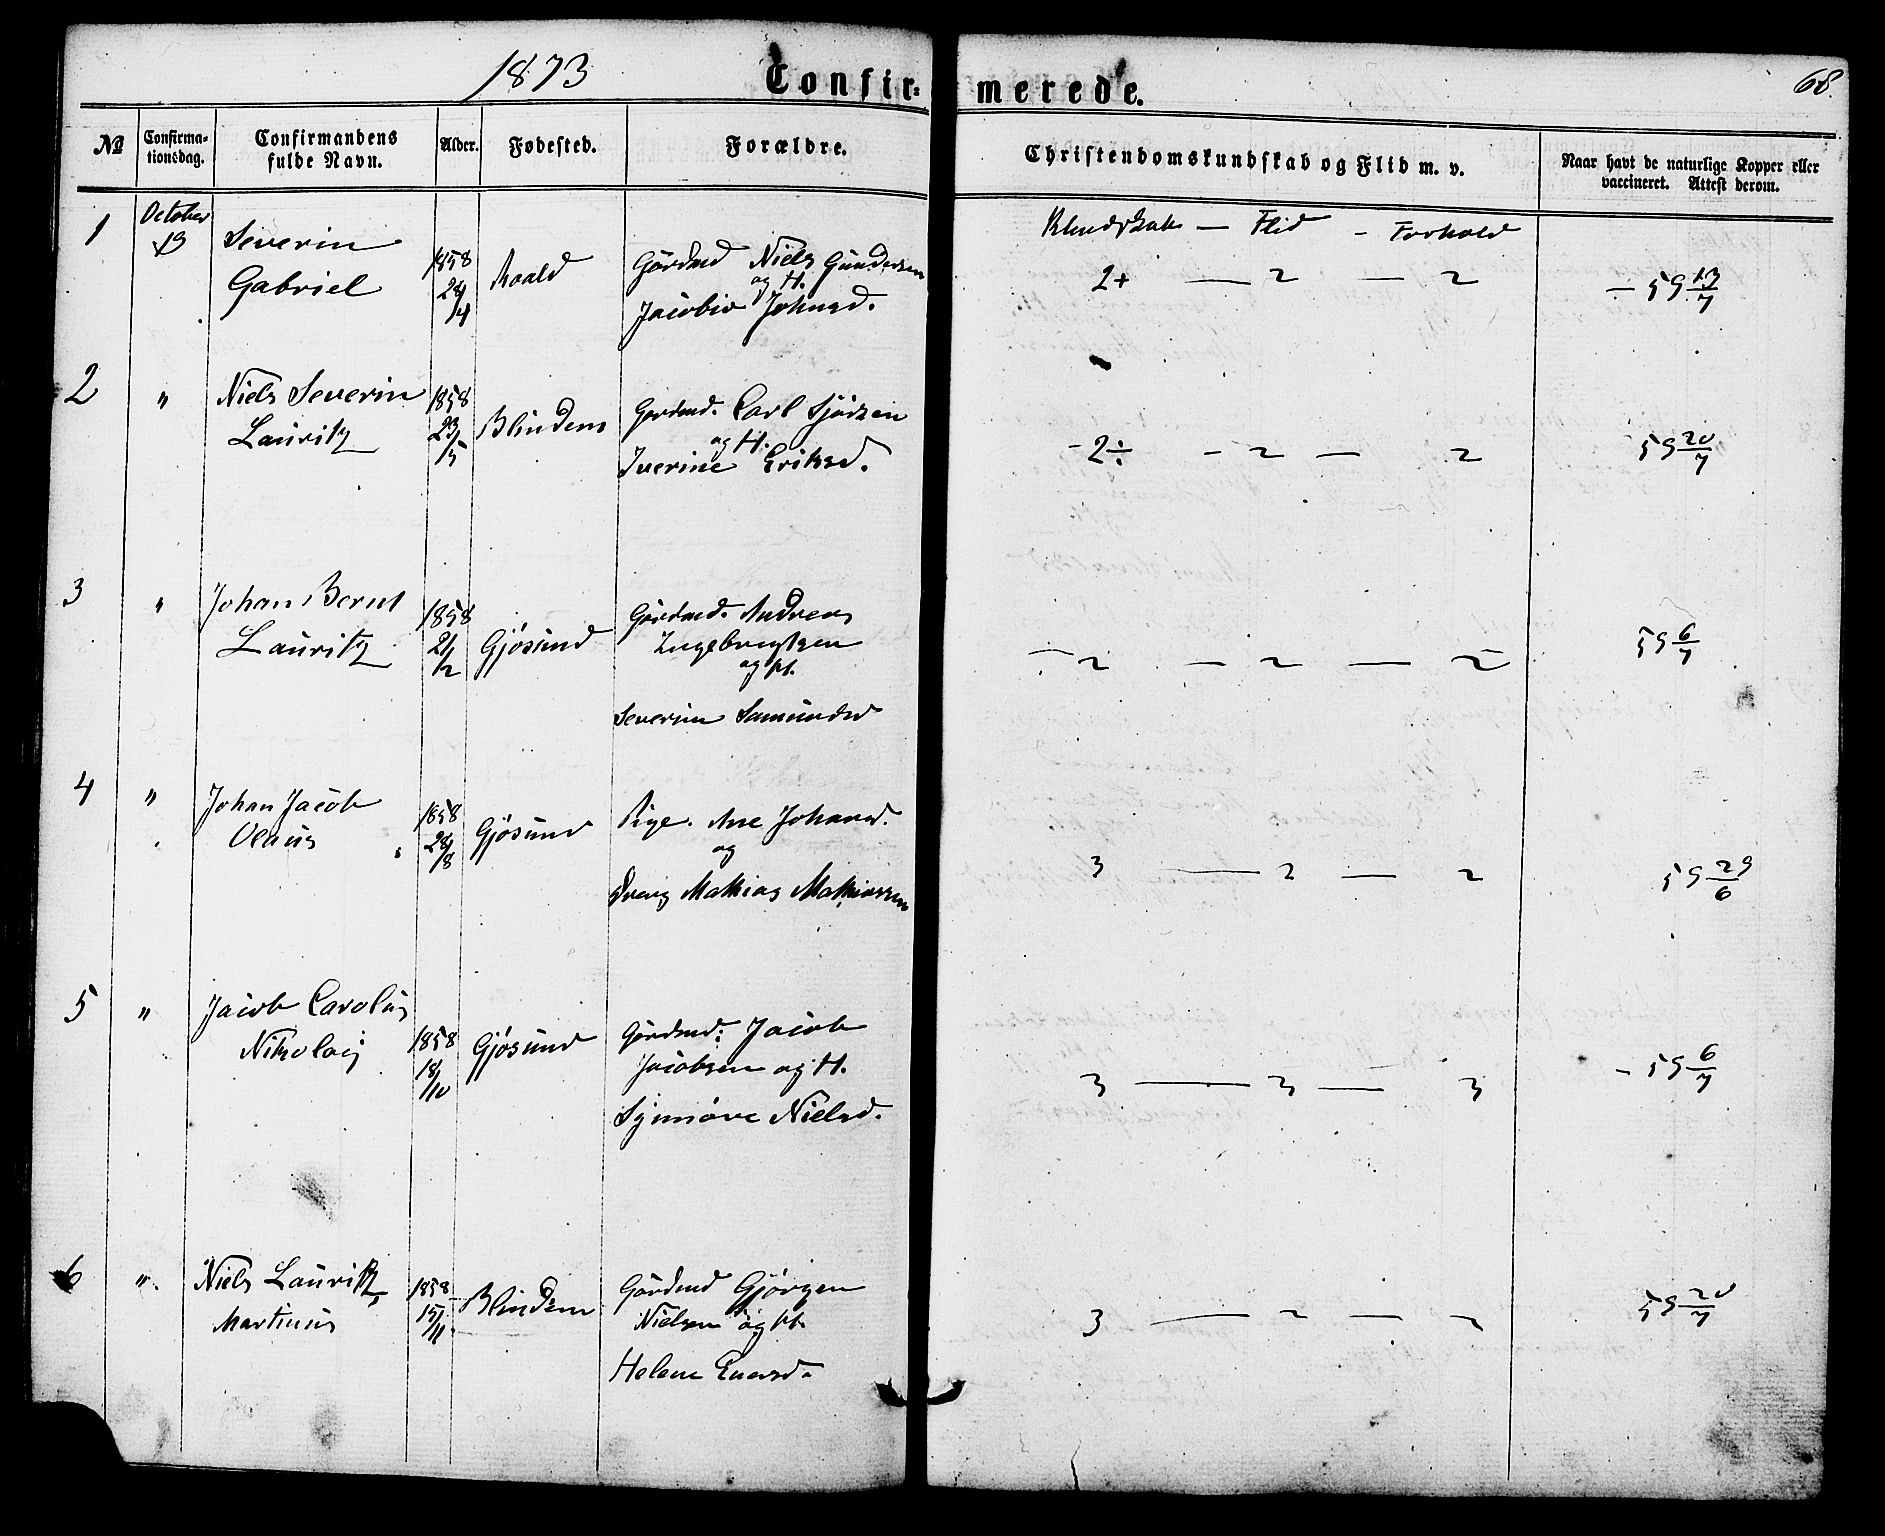 1873
Confir= merede.
68.
No
Confirma-
tionsdag.
Confirmandens
fulde Navn.
Alder.
Fødested.
Forældre.
Christendomskundskab og Flid m. v.
Naar havt de naturlige Kopper eller
vaccineret. Attest derom.
October
19
Kundskab — Flid - Forhold
1
Severin
Gabriel
1858
28/4
Roald
Gårdmd Niels Gundersen
og H.
Jacobio Johnsd.
2+ — 2 — 2
— 59 13/7
2
"
Niels Severin
Lauritz
1858
23/5
Blindem
Gardmd. Carl Sjørsen
og H.
Iverine Eriksd.
- 2÷ - 2 — 2
59 20/7
3
"
Johan Bernt
Lauritz
1858
21/2
Gjøsund
Gårdmd. Andreas
Ingebrigtsen
og H.
Severine Samundsd
- 2 — 2 — 2
59 6/7
4
"
Johan Jacob
Olaus
1858
28/8
Gjøsund
Pige. Ane Johansd.
og
Dreng Mathias Mathiassen
3 — 2 — 2
59 29/6
5
"
Jacob Carolus
Nikolaij
1858
18/10
Gjøsund
Gårdmd: Jacob
Jacobsen og H.
Synnøve Nielsd.
3 — 3 — 3
- 59 6/7
6
"
Niels Lauritz
Martinus
1858
15/11
Blindem
Gårdmd Gjørgen
Nielsen og H.
Helene Enersd.
3 — 2 — 2
59 20/7